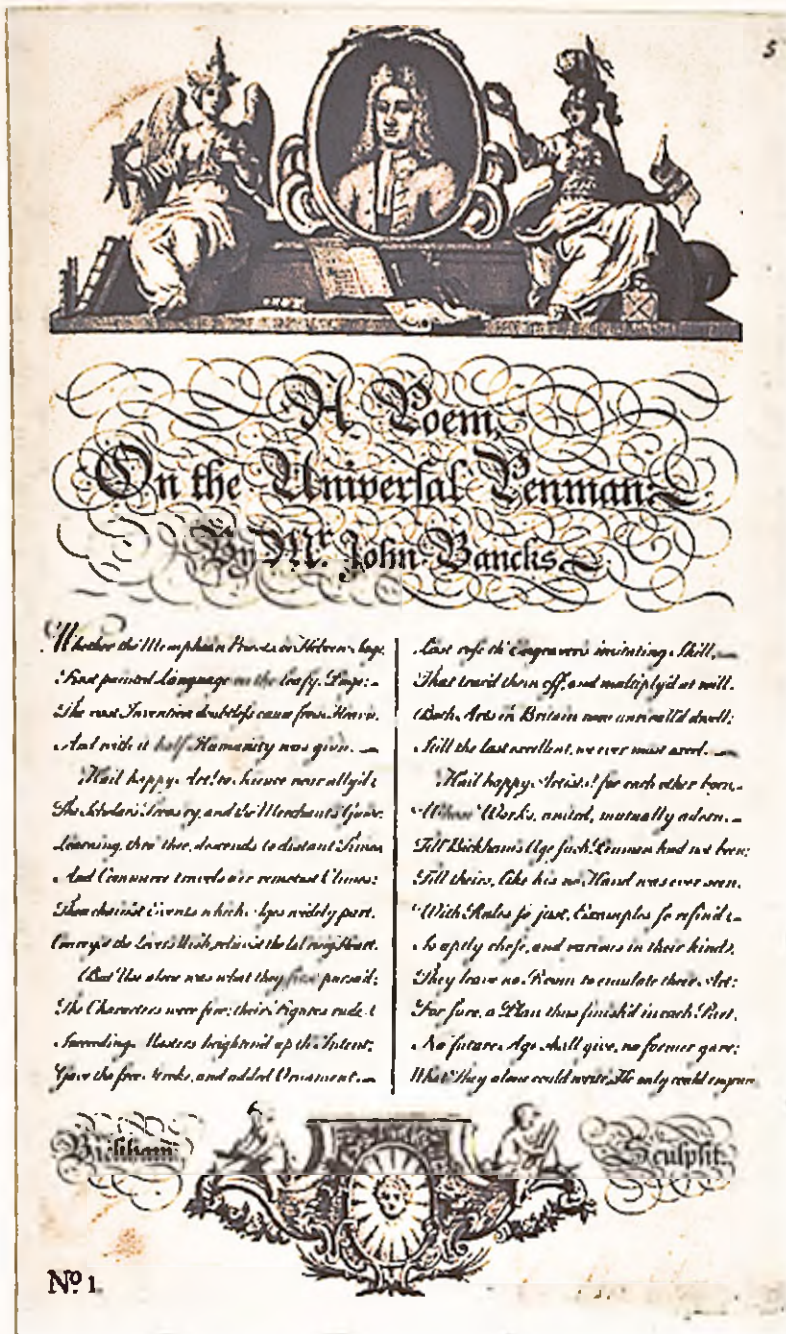 5
A Poem,
On the Universal Penman:
By Mr. John Bancks.
Whether the Memphian Priests, or Hebrew Sage,
First painted Language on the leafy Page:
The vast Invention doubtless came from Heav'n,
And with it half Humanity was giv'n.
Hail happy Art! to Science near ally'd:
The Scholar's Treasury, and the Merchant's Guide.
Learning, thro' thee, descends to distant Times
And Commerce travels o'er remotest Climes:
Thou chainest Events which Ages widely part,
Convey'st the Lover's Wish, reliev'st the Heart.
But Use alone was what they first pursu'd;
The Characters were few; their Figures rude:
Succeeding Masters brighten'd up th' Intent;
Gave the free Stroke, and added Ornament.
Last rose th' Engraver's imitating Skill,
That trac'd them off, and multiply'd at will.
Both Arts in Britain now unrivall'd dwell;
Still the last excellent, we ever must excel.
Hail happy Artists! for each other born,
Whose Works, united, mutually adorn.
Till Bickham's Age such Penmen had not been;
Till theirs, like his no Hand was ever seen.
With Rules so just, Examples so refin'd:
So aptly chose, and various in their kinds,
They leave no Room to emulate their Art:
For sure, a Plan thus finish'd in each Part,
No future Age shall give, no former gave;
What They alone could write, He only could engrave
Bickham
Sculpsit.
No. 1.